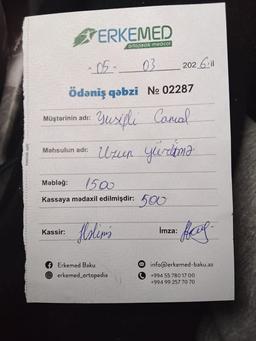 ERKEMED
ortopedik medical
- 05 - 03 202 6 il
Ödəniş qəbzi № 02287
Müştərinin adı: Yusifli Camal
Məhsulun adı: Uzun
Məbləğ: 1500
Kassaya mədaxil edilmişdir: 500
Kassir: İmza:
Erkemed Baku info@erkemed-baku.az
erkemed_ortopedia +994 55 780 17 00
+994 99 257 70 70